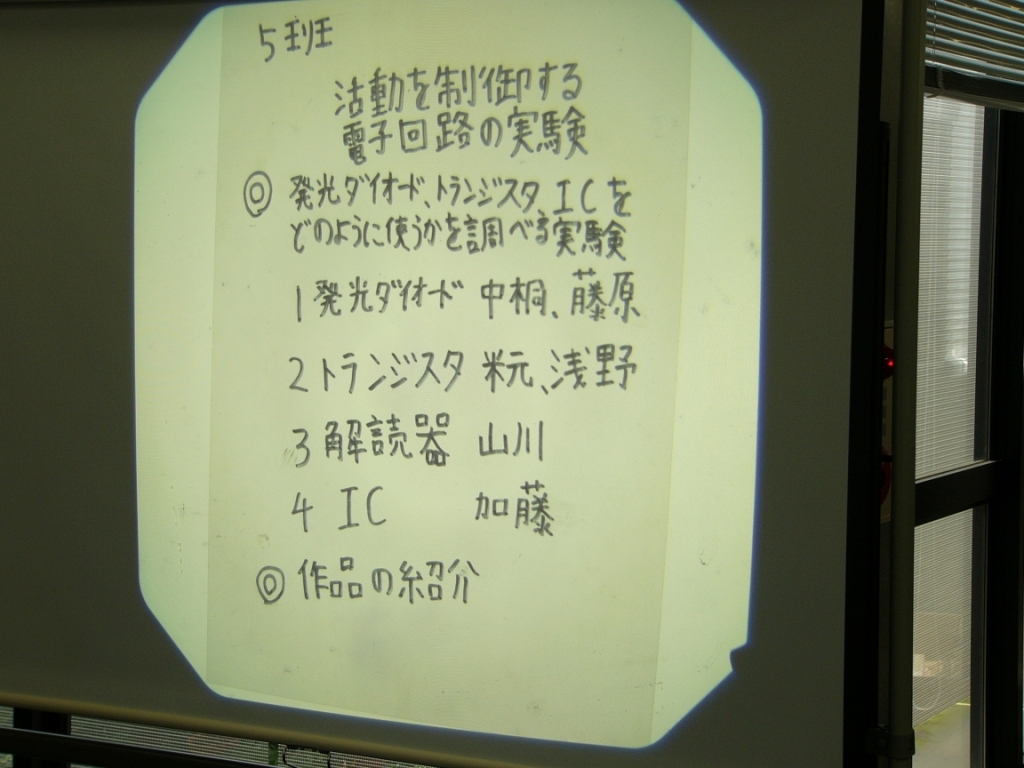 5班
活動を制御する
電子回路の実験
◎ 発光ダイオード、トランジスタ、ICを
どのように使うかを調べる実験
1 発光ダイオード 中桐、藤原
2 トランジスタ 粎元、浅野
3 解読器 山川
4 IC 加藤
◎ 作品の紹介